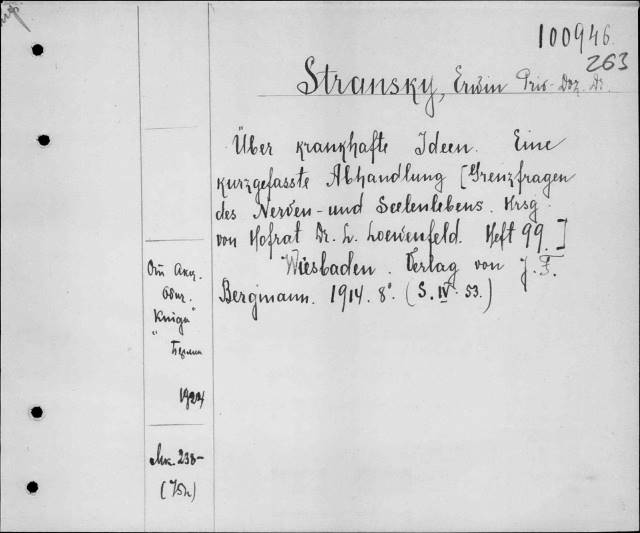 100946.
263
Stransky, Erwin Priv-Doz. Dr.
Über krankhafte Ideen. Eine
kurzgefasste Abhandlung [Grenzfragen
des Nerven- und Seelenlebens. Hrsg.
von Hofrat Dr. L. Loewenfeld. Heft 99.]
Wiesbaden. Verlag von J. F.
Bergmann. 1914. 8°. (S. IV. 53.)
От Акц.
Общ.
"Книга"
Берлин
1924